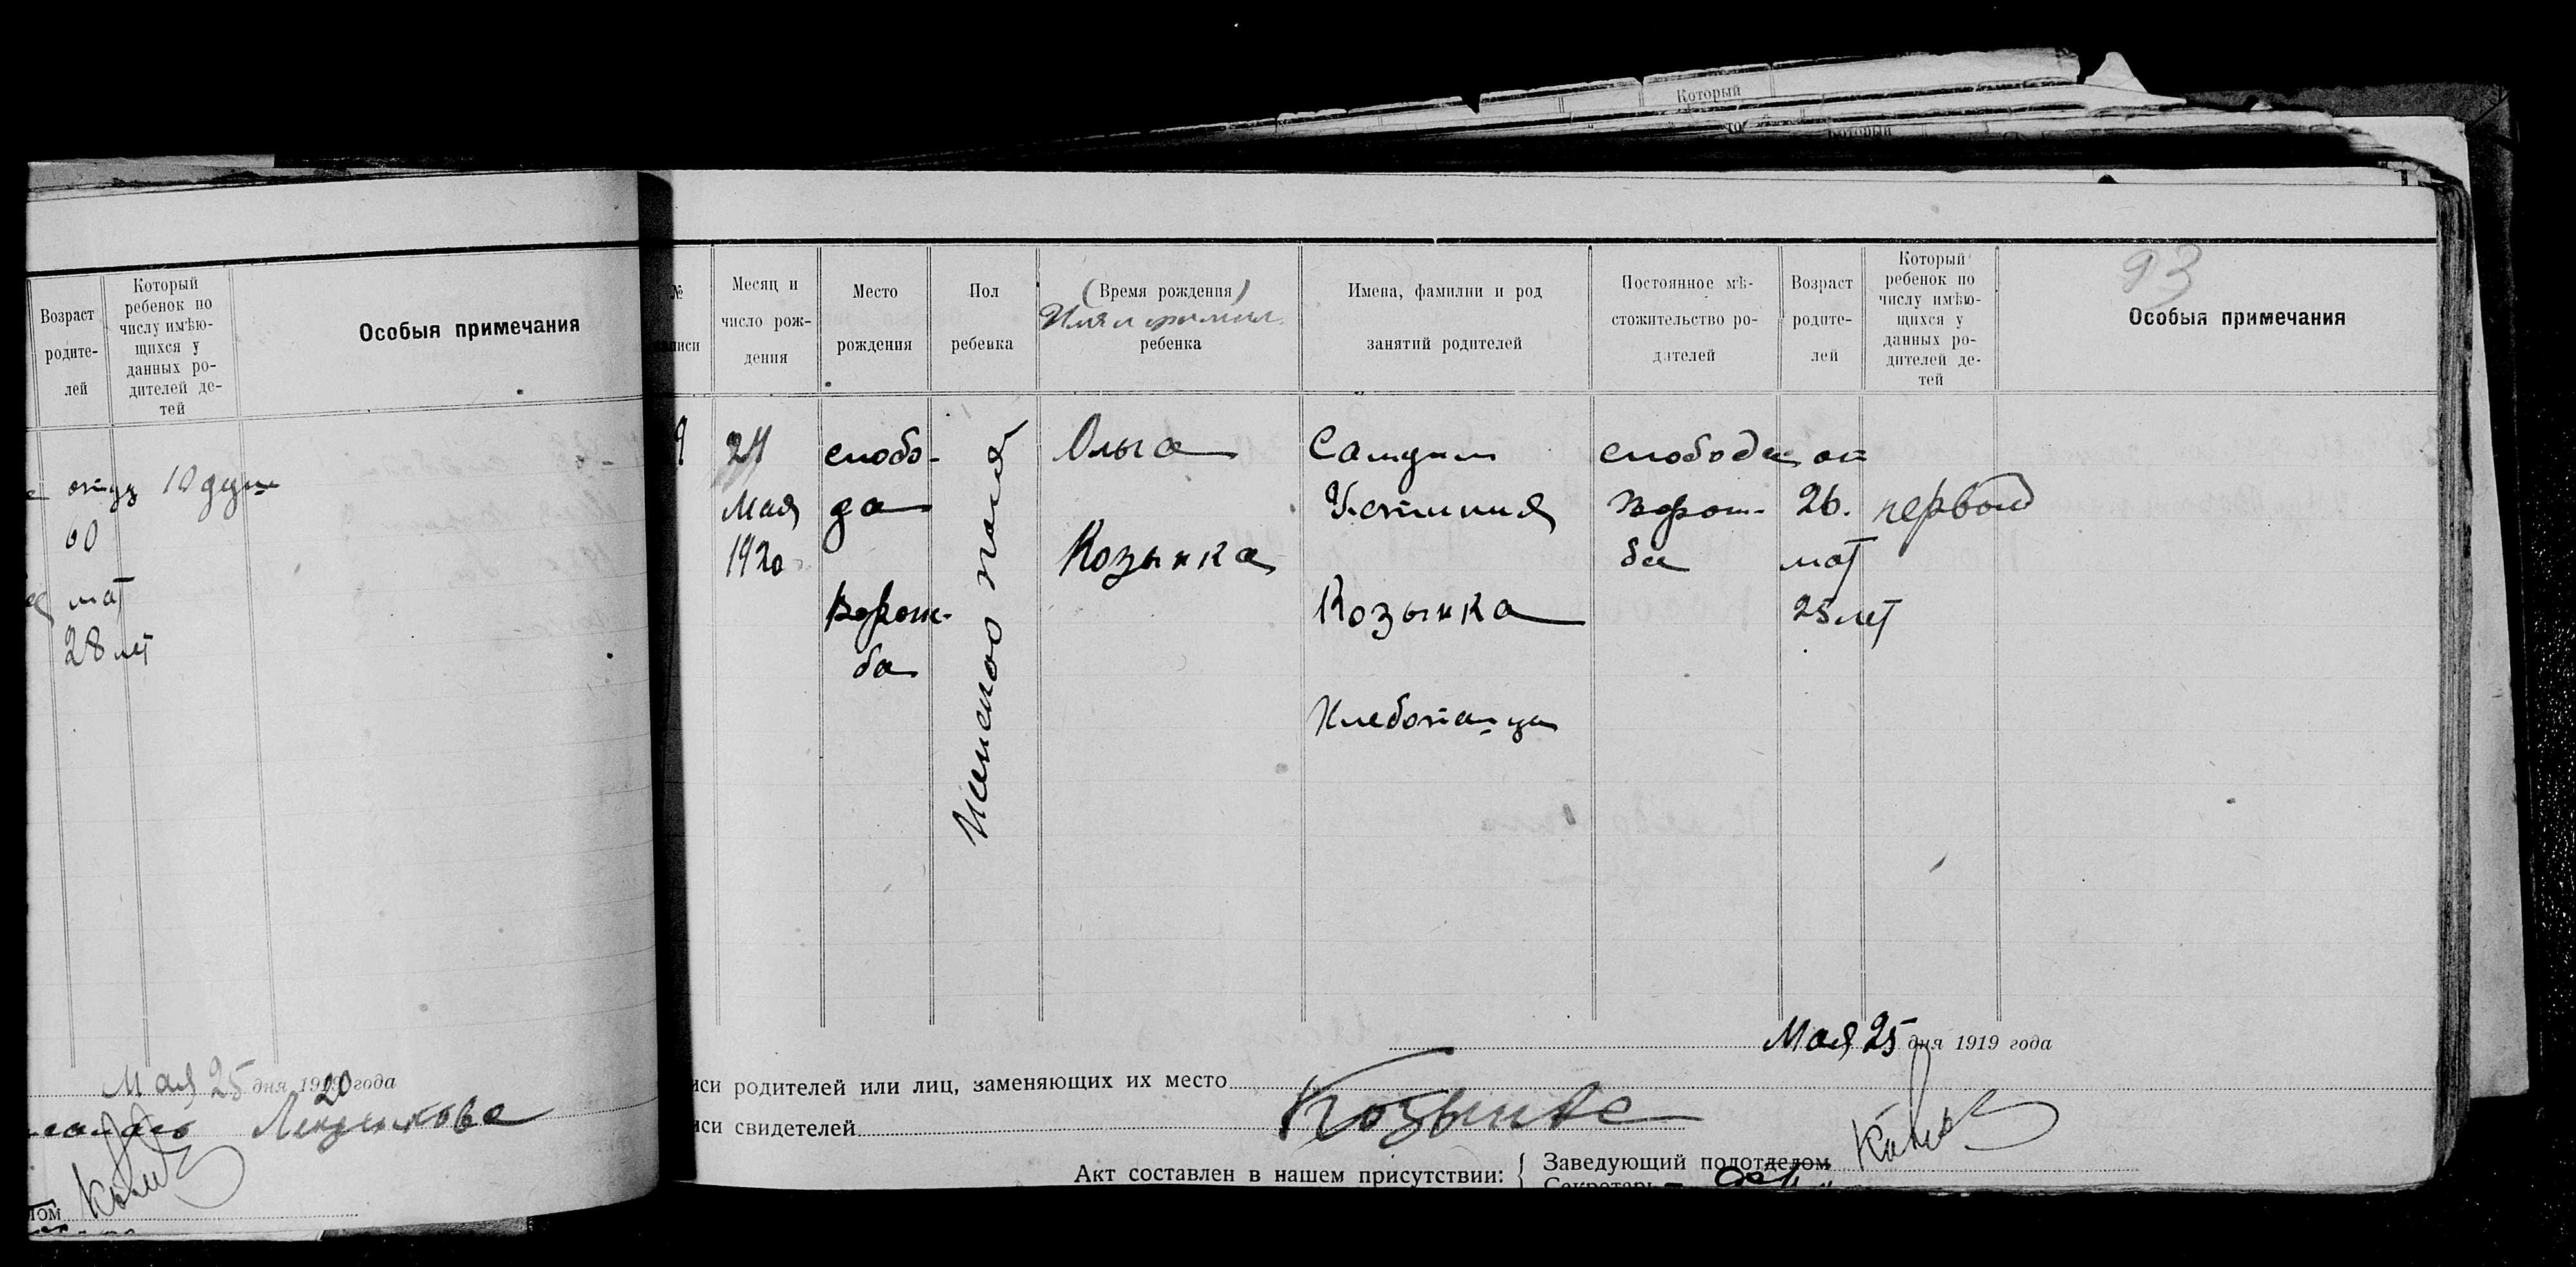 Который
Который
Возраст
родите-
лей
Который
ребенок по
числу имѣю-
щихся у
данных ро-
дителей де-
тей
Особыя примечания
отцу 10 душ
60
мат
28 лет
Мая 25 дня 1920 года
№
Месяц и
число рож-
дения
Место
рождения
Пол
ребенка
(Время рождения)
Имя и фамил.
ребенка
Имена, фамилии и род
занятий родителей
Постоянное мѣ-
стожительство ро-
дителей
Возраст
родите-
лей
Который
ребенок по
числу имѣю-
щихся у
данных ро-
дителей де-
тей
93
Особыя примечания
9
24
Мая
1920
слобо-
да
Ворож-
ба
Женского пола
Ольга
Козынка
Устиния
Козынка
Хлебопашцы
слобода
Ворож-
ба
от
26.
мат
25 лет
первый
Мая 25 дня 1919 года
иси родителей или лиц, заменяющих их место
иси свидетелей
Козынка
Акт составлен в нашем присутствии:
Заведующий подотделом
Секретарь